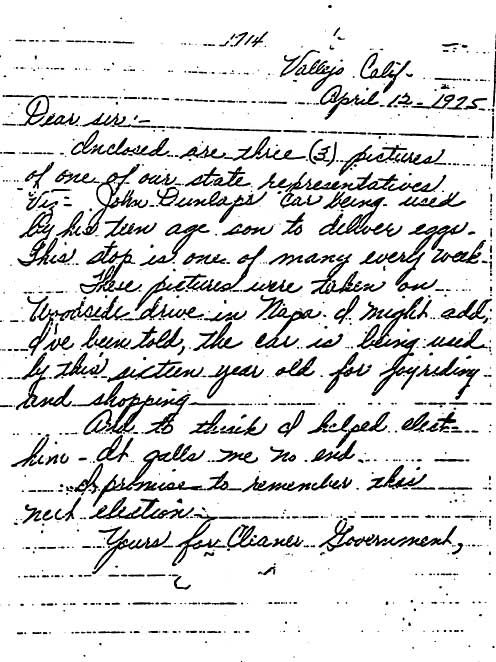 1714
Vallejo Calif-
April 12-1975
Dear sir:-
Inclosed are three (3) pictures
of one of our state representatives
Viz- John Dunlaps car being used
by his teen age son to deliver eggs.
This stop is one of many every week
These pictures were taken on
Woodside drive in Napa I might add,
I've been told, the car is being used
by this sixteen year old for joyriding
and shopping
And to think I helped elect
him - It galls me no end.
I promise to remember this
next election.
Yours for Cleaner Government,